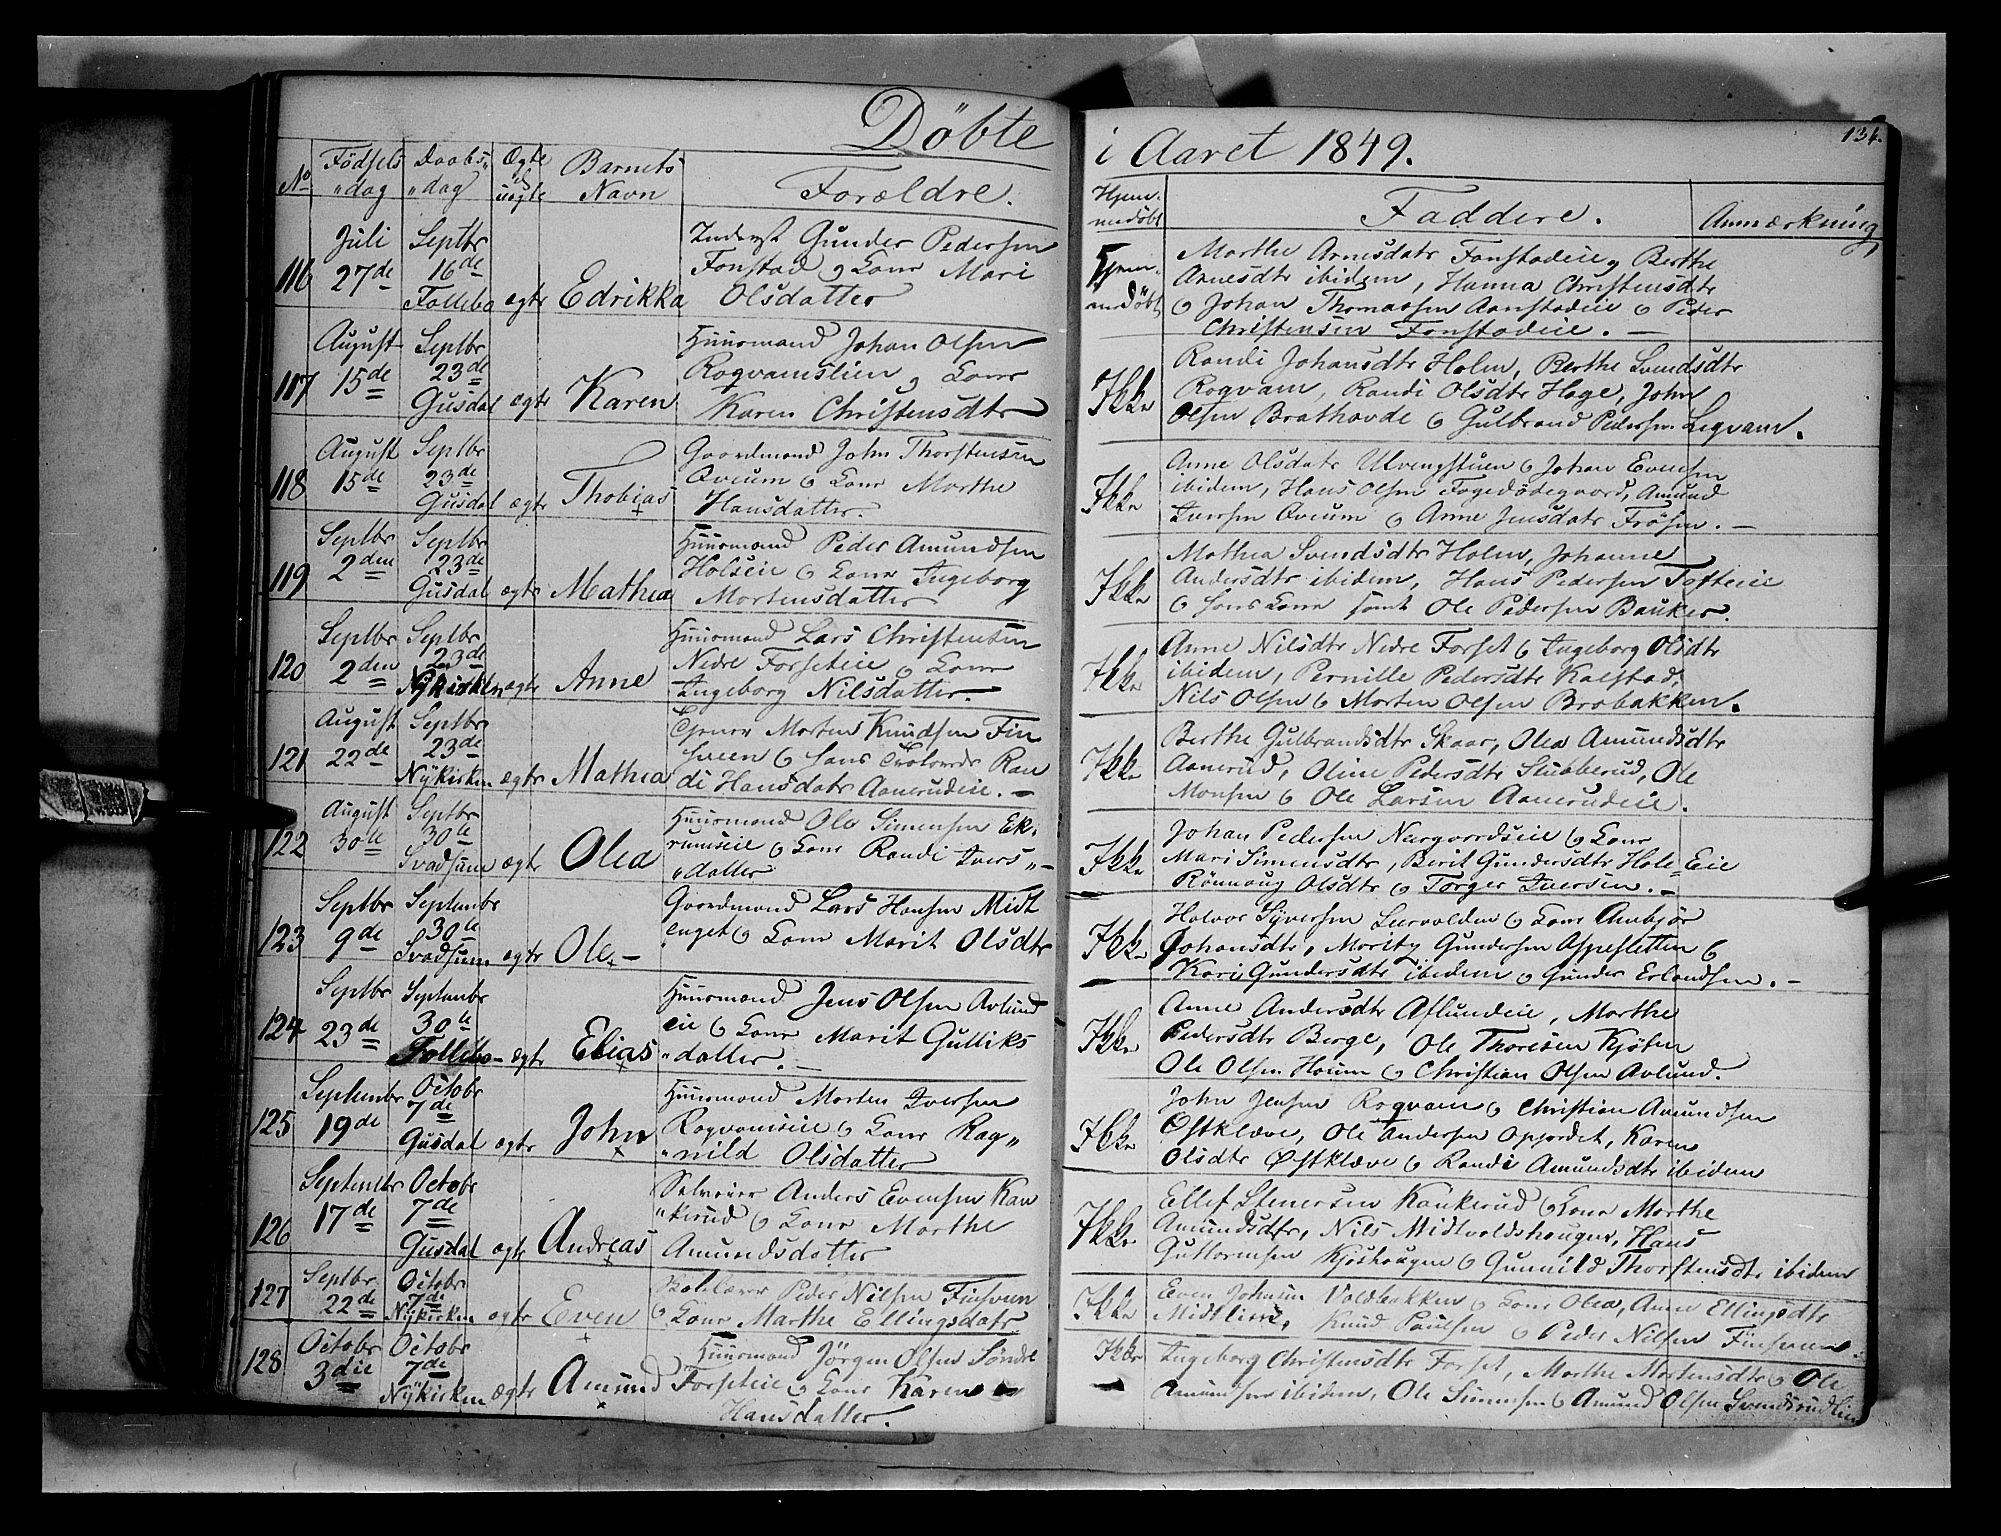 Döbte
i Aaret 1849.
134.
No Födsels dag Daabs dag Ægte el uægte Barnets Navn Forældre.
Hjemmedöbt Faddere. Anmærkning
116 Juli 27de Septbr 16de Follebo ægte Edrikka
Inderst Gunder Pedersen
Fonstad og Kone Mari
Olsdatter
Hjemmedöbt
Marthe Arnesdatr Fonstadeie og Berthe
Arnesdtr ibidem, Hanna Christensdtr
og Johan Thomassen Aanstadeie og Peder
Christensen Fonstadeie. —
117 August 15de Septbr 23de Gusdal ægte Karen
Huusmand Johan Olsen
Rogvamslien og Kone
Karen Christensdtr
Ikke
Randi Johansdtr Holm, Berthe Svendsdtr
Rogvam, Randi Olsdtr Hage, John
Olsen Brathovde og Gulbrand Pedersen Legvam.
118 August 15de Septbr 23de Gusdal ægte Thobias
Gaardmand John Thorstensen
Qvium og Kone Marthe
Hansdatter.
Ikke
Anne Olsdatr Ulvengstuen og Johan Evensen
ibidem, Hans Olsen Fogedödegaard, Amund
Iversen Qvium og Anne Jensdatr Frösen. —
119 Septbr 2den Septbr 23de Gusdal ægte Mathea
Huusmand Peder Amundsen
Holseie og Kone Ingeborg
Mortensdatter
Ikke
Mathea Svendsdtr Holm, Johanne
Andersdtr ibidem, Hans Pedersen Tofteeie
og hans Kone samt Ole Pedersen Bauker.
120 Septbr 2den Septbr 23de Nykirken ægte Anne
Huusmand Lars Christensen
Nedre Forseteie og Kone
Ingeborg Nilsdatter
Ikke
Anne Nilsdtr Nedre Forset og Ingeborg Olsdtr
ibidem, Pernille Pedersdtr Kalstad,
Nils Olsen og Morten Olsen Brobakken.
121 August 22de Septbr 23de Nykirken ægte Mathea
Morten Knudsen Fin
sveen og hans Ran
di Hansdatr Aamerudeie. —
Ikke
Berthe Gulbrandsdtr Skaar, Olea Amundsdtr
Aamerud, Oline Pedersdtr Stubberud, Ole
Monsen og Ole Larsen Aamerudeie.
122 August 30te Septbr 30te Svadsum ægte Olea
Huusmand Ole Simensen Ek-
rumseie og Kone Randi Ivers
datter
Ikke
Johan Pedersen Nargaardseie og Kone
Mari Simensdtr, Berit Gundersdtr Hole Eie
Rönnoug Olsdtr og Torger Iversen. —
123 Septbr 9de Septembr 30te Svadsum ægte Ole —
Gaardmand Lars Hansen Midt
enget og Kone Marit Olsdtr
Ikke
Halvor Syversen og Kone Ambjör
Johansdtr, Morits Gundersen Aspesletten og
Kari Gundersdtr ibidem og Gunder Erlandsen. —
124 Septbr 23de Septembr 30te Follebo ægte Elias
Huusmand Jens Olsen Avlund
eie og Kone Marit Gulliks
datter. —
Ikke
Anne Andersdtr Aflundeie, Marthe
Pedersdtr Berge, Ole Thoresen Kjösen
Ole Olsen Houm og Christian Olsen Avlund.
125 Septembr 19de Octobr 7de Gusdal ægte John
Huusmand Morten Iversen
Rogvamseie og Kone Rag
nild Olsdatter
Ikke
John Jensen Rogvam og Christian Amundsen
Östklæve, Ole Andersen Opjordet, Karen
Olsdtr Östklæve og Randi Amundsdtr ibidem
126 Septembr 17de Octobr 7de Gusdal ægte Andreas
Selveier Anders Evensen Kan
kerud og Kone Marthe
Amundsdatter
Ikke
Ellef Stenersen Kankerud og Kone Marthe
Amundsdtr, Nils Midtvoldshougen, Hans
Guttormsen Kjoshougen og Gunnild Thorstensdtr ibidem
127 Septbr 22de Octobr 7de Nykirken ægte Even
Peder Nilsen Finsveen
og Kone Marthe Ellingsdatr
Ikke
Even Johnsen Voldbakken og Kone Olea, Anne Ellingsdtr
Midtlien, Knud Paulsen og Peder Nilsen Finsveen.
128 Octobr 3die Octobr 7de Nykirken ægte Amund
Huusmand Jörgen Olsen Söndre
Forseteie og Kone Karen
Hansdatter.
Ikke
Ingeborg Christensdtr Forset, Marthe Mortensdtr og Ole
Amundsen ibidem, Ole Simensen og Amund Olsen Svendsrudlien